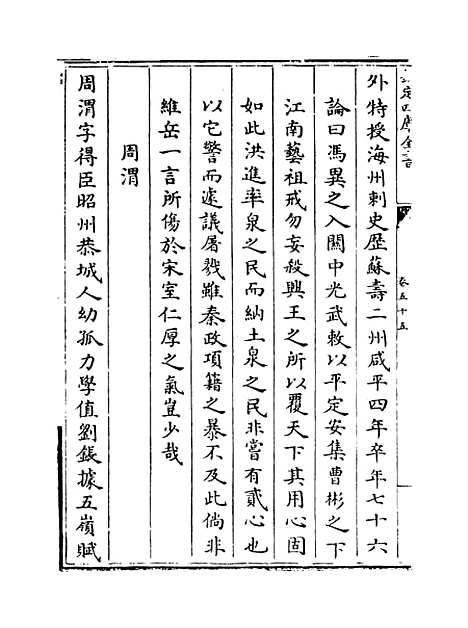 外特授海州刺史歷蘇壽二州咸平四年卒年七十六
論曰馮異之入關中光武敕以平定安集曹彬之下
江南藝祖戒勿妄殺興王之所以覆天下其用心固
如此洪進率泉之民而納土泉之民非嘗有貳心也
以它警而遽議屠戮雖秦政項籍之暴不及此倘非
維岳一言所傷於宋室仁厚之氣豈少哉
周渭
周渭字得臣昭州恭城人幼孤力學值劉鋹據五嶺賦
卷五十五